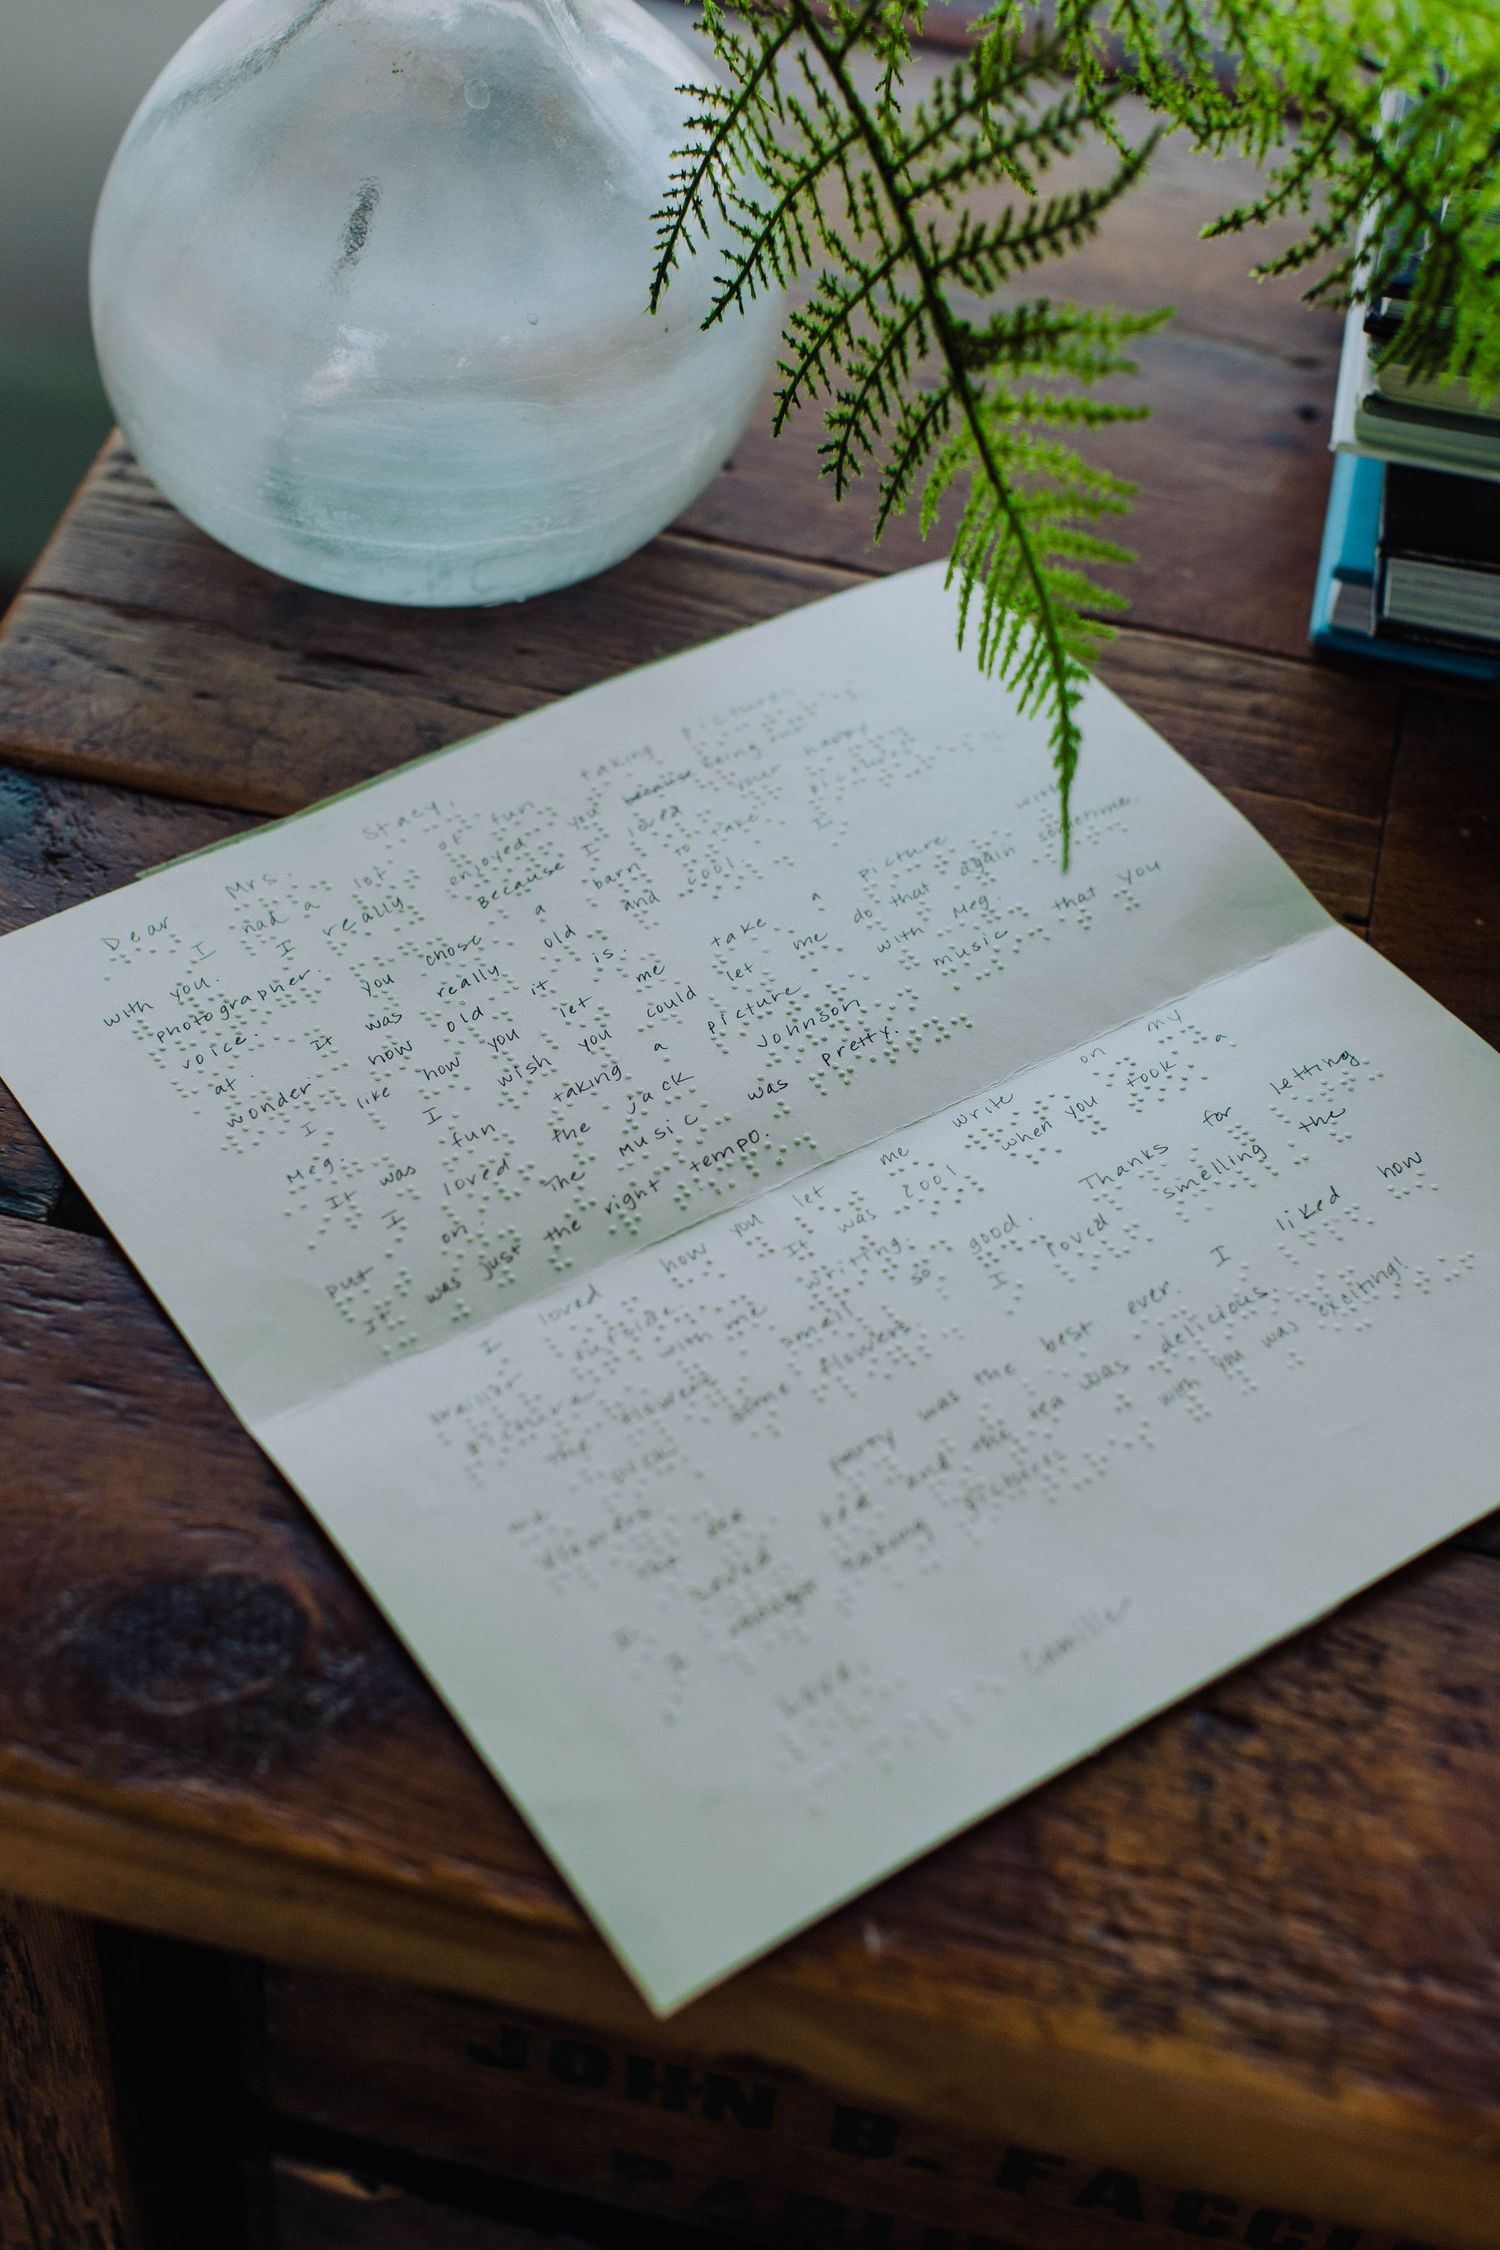 Dear Mrs Stacy,
I had a lot of fun taking pictures
with you. I really enjoyed you because being
photographer. Because I loved your happy
voice. You chose a barn to take pictures
at. It was really old and cool. I
wonder how old it is.
I like how you let me take a picture with
Meg. I wish you could let me do that again sometime.
It was fun taking a picture with Meg.
I loved the Jack Johnson music that you
put on. The music was pretty.
It was just the right tempo.
I loved how you let me write on my
brailler outside. It was cool when you took a
picture with me writing.
The flowers smell so good. Thanks for letting
me pick some flowers. I loved smelling the
flowers
The tea party was the best ever. I liked how
I loved and the tea was delicious.
taking pictures with you was exciting!
Love,
Camille
JOHN B. FACC